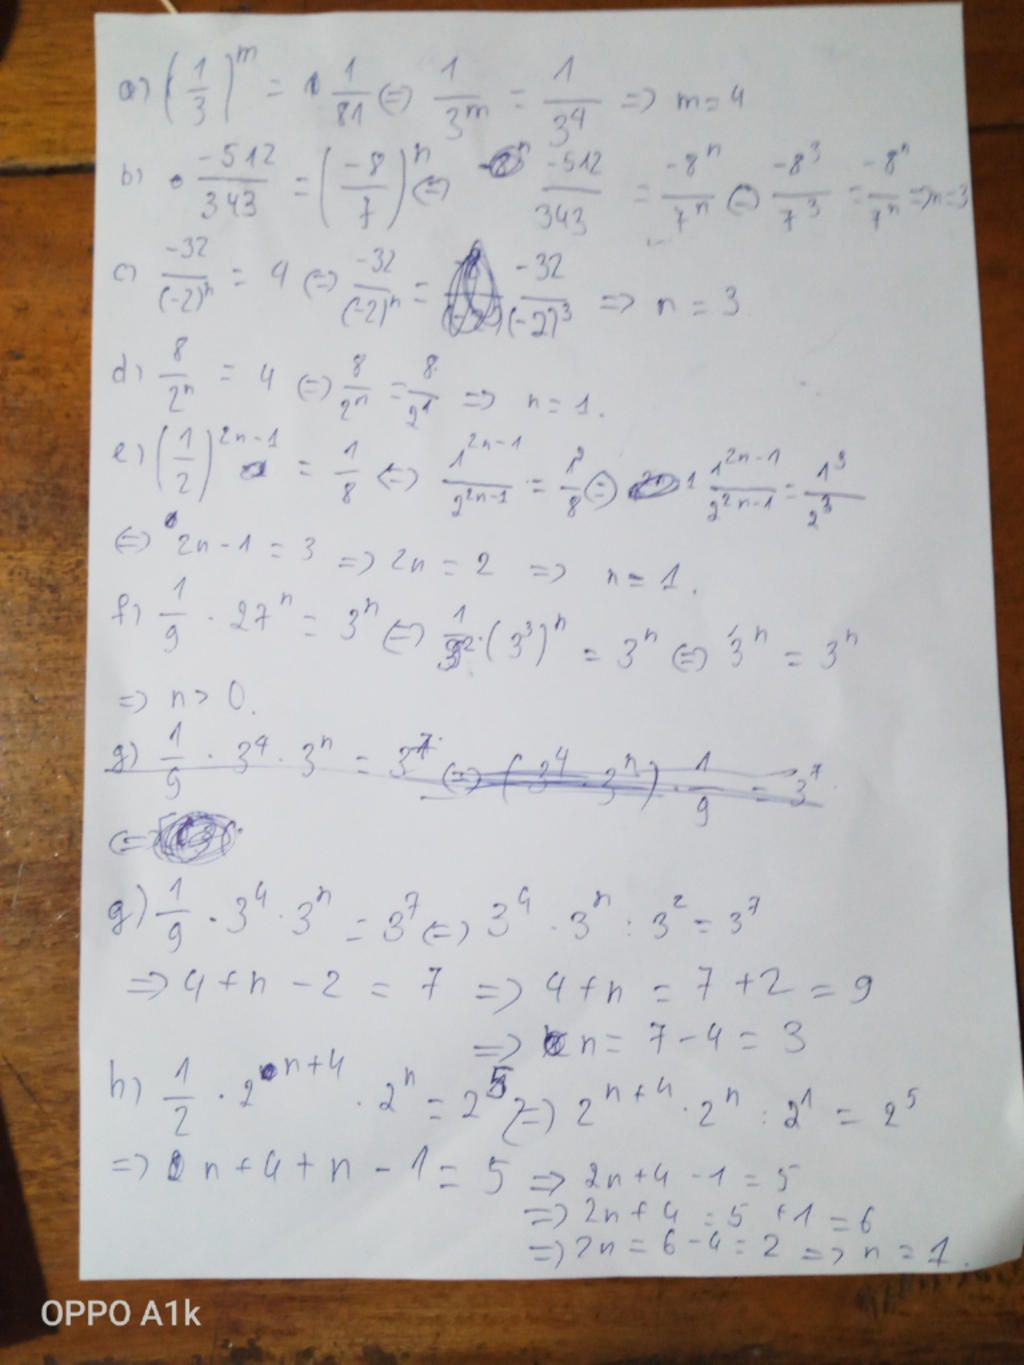 a) (1/3)^m = 1/81 (=) 1/3^m = 1/3^4 => m = 4
b) -512/343 = (-8/7)^n (=) -512/343 = -8^n/7^n (=) -8^3/7^3 = -8^n/7^n => n = 3
c) -32/(-2)^n = 4 (=) -32/(-2)^n = -32/(-2)^3 => n = 3
d) 8/2^n = 4 (=) 8/2^n = 8/2^1 => n = 1.
e) (1/2)^{2n-1} = 1/8 (=) 1^{2n-1}/2^{2n-1} = 1^3/8 (=) 1^{2n-1}/2^{2n-1} = 1^3/2^3
(=) 2n - 1 = 3 => 2n = 2 => n = 1.
f) 1/9 . 27^n = 3^n (=) 1/3^2 . (3^3)^n = 3^n (=) 3^n = 3^n
=> n > 0.
g) 1/9 . 3^4 . 3^n = 3^7 (=) (3^4 . 3^n) . 1/9 = 3^7
(=)
g) 1/9 . 3^4 . 3^n = 3^7 (=) 3^4 . 3^n : 3^2 = 3^7
=> 4 + n - 2 = 7 => 4 + n = 7 + 2 = 9
=> n = 7 - 4 = 3
h) 1/2 . 2^{n+4} . 2^n = 2^5 (=) 2^{n+4} . 2^n : 2^1 = 2^5
=> n + 4 + n - 1 = 5 => 2n + 4 - 1 = 5
=> 2n + 4 = 5 + 1 = 6
=> 2n = 6 - 4 = 2 => n = 1.
OPPO A1k